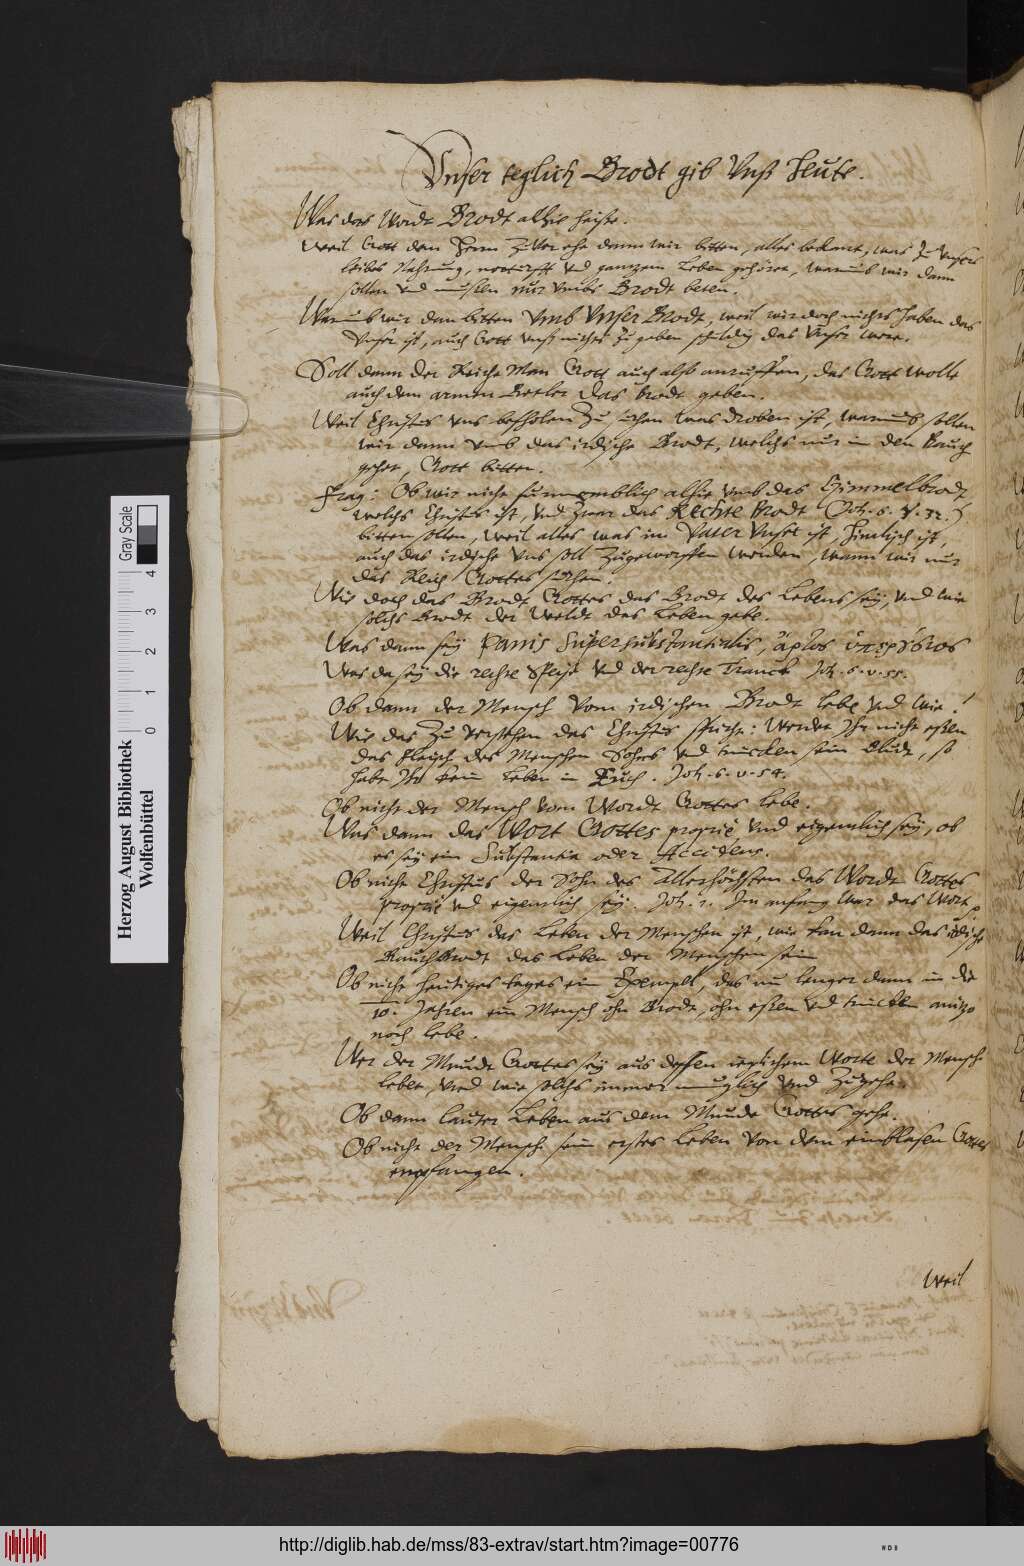 Vnser teglich Brodt gib Vnß Heute.
Was das Wordt Brodt alhie heiße.
Weil Gott dem Herrn zuvor ehe dann wir bitten, alles bekant, was zu unsers
leibes Nahrung, notturfft vnd gantzem Leben gehöret, warumb wir dann
sollen vnd mußen nur vmbs Brodt beten.
Warumb wir dan bitten vmb Vnser Brodt, weil wir doch nichts haben das
Vnser ist, auch Gott vnß nichts zu geben schuldig das Vnser were.
Soll dann der Reiche Man Gott auch alß anruffen, das Gott wolle
auch dem armen Betler das brodt geben.
Weil Christus vns befholen zu suchen was droben ist, warumb sollen
wir dann vmb das irdische Brodt, welchs nur in den Bauch
gehet, Gott bitten.
Frag: Ob wir nicht furnemblich alhie vmb das Himmelbrodt,
welchs Christus ist, vnd zwar das Rechte Brodt (Joh. 6. v. 32.)
bitten sollen, weil alles was im Vater Vnser ist, himlisch ist,
auch das irdische vns soll zugeworffen werden, wann wir nur
das Reich Gottes suchen.
Wie doch das Brodt Gottes das Brodt des Lebens sey, vnd wie
solchs Brodt der Weldt das Leben gebe.
Was dann sey Panis Supersubstantialis, ἄρτος ἐπιούσιος
Was da sey die rechte Speise vnd der rechte Tranck Joh. 6. v. 55.
Ob dann der Mensch vom irdischen Brodt lebe vnd wie?
Wie das zu verstehen das Christus spricht: Werdet Ihr nicht eßen
das Fleisch des Menschen Sohns vnd trincken sein Bludt, so
habt Ihr kein Leben in Euch. Joh. 6. v. 54.
Ob nicht der Mensch vom Wordt Gottes lebe.
Was dann das Wort Gottes propriè vnd eigentlich sey, ob
es sey ein Substantia oder Accidens.
Ob nicht Christus der Sohn des Allerhöchsten das Wordt Gottes
propriè vnd eigentlich sey. Joh. 1. Im anfang war das Wort
Weil Christus das Leben der Menschen ist, wie kan dann das irdische
Bauchbrodt das Leben der Menschen sein
Ob nicht heutiges tages ein Exempel, das nu lenger dann in die
10. Jahren ein Mensch ohn Brodt, ohn eßen vnd trincken
noch lebe.
Wer der Mundt Gottes sey aus deßen ieglichem Worte der Mensch
lebet, vnd wie solchs immer muglich vnd zugehe.
Ob dann lauter Leben aus dem Munde Gottes gehe.
Ob nicht der Mensch sein erstes Leben von dem einblasen Gottes
empfangen.
Weil
Herzog August Bibliothek
Wolfenbüttel
0 1 2 3 4
Gray Scale
http://diglib.hab.de/mss/83-extrav/start.htm?image=00776